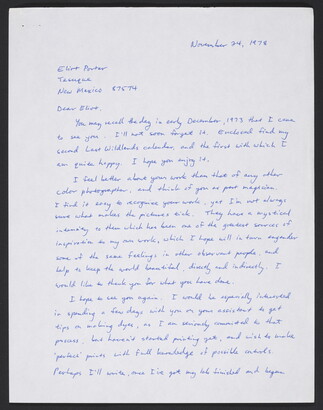 November 24, 1978
Eliot Porter
Tesuque
New Mexico 87574
Dear Eliot,
You may recall the day in early December, 1973 that I came
to see you. I'll not soon forget it. Enclosed find my
second Last Wildlands calendar, and the first with which I
am quite happy. I hope you enjoy it.
I feel better about your work than that of any other
color photographer, and think of you as part magician.
I find it easy to recognize your work, yet I'm not always
sure what makes the pictures tick. They have a mystical
intensity to them which has been one of the greatest sources of
inspiration to my own work, which I hope will in turn engender
some of the same feelings in other observant people, and
help to keep the world beautiful, directly and indirectly. I
would like to thank you for what you have done.
I hope to see you again. I would be especially interested
in spending a few days with you or your assistant to get
tips on making dyes, as I am seriously committed to that
process, but haven't started printing yet, and wish to make
'perfect' prints with full knowledge of possible controls.
Perhaps I'll write, once I've got my lab finished and begun